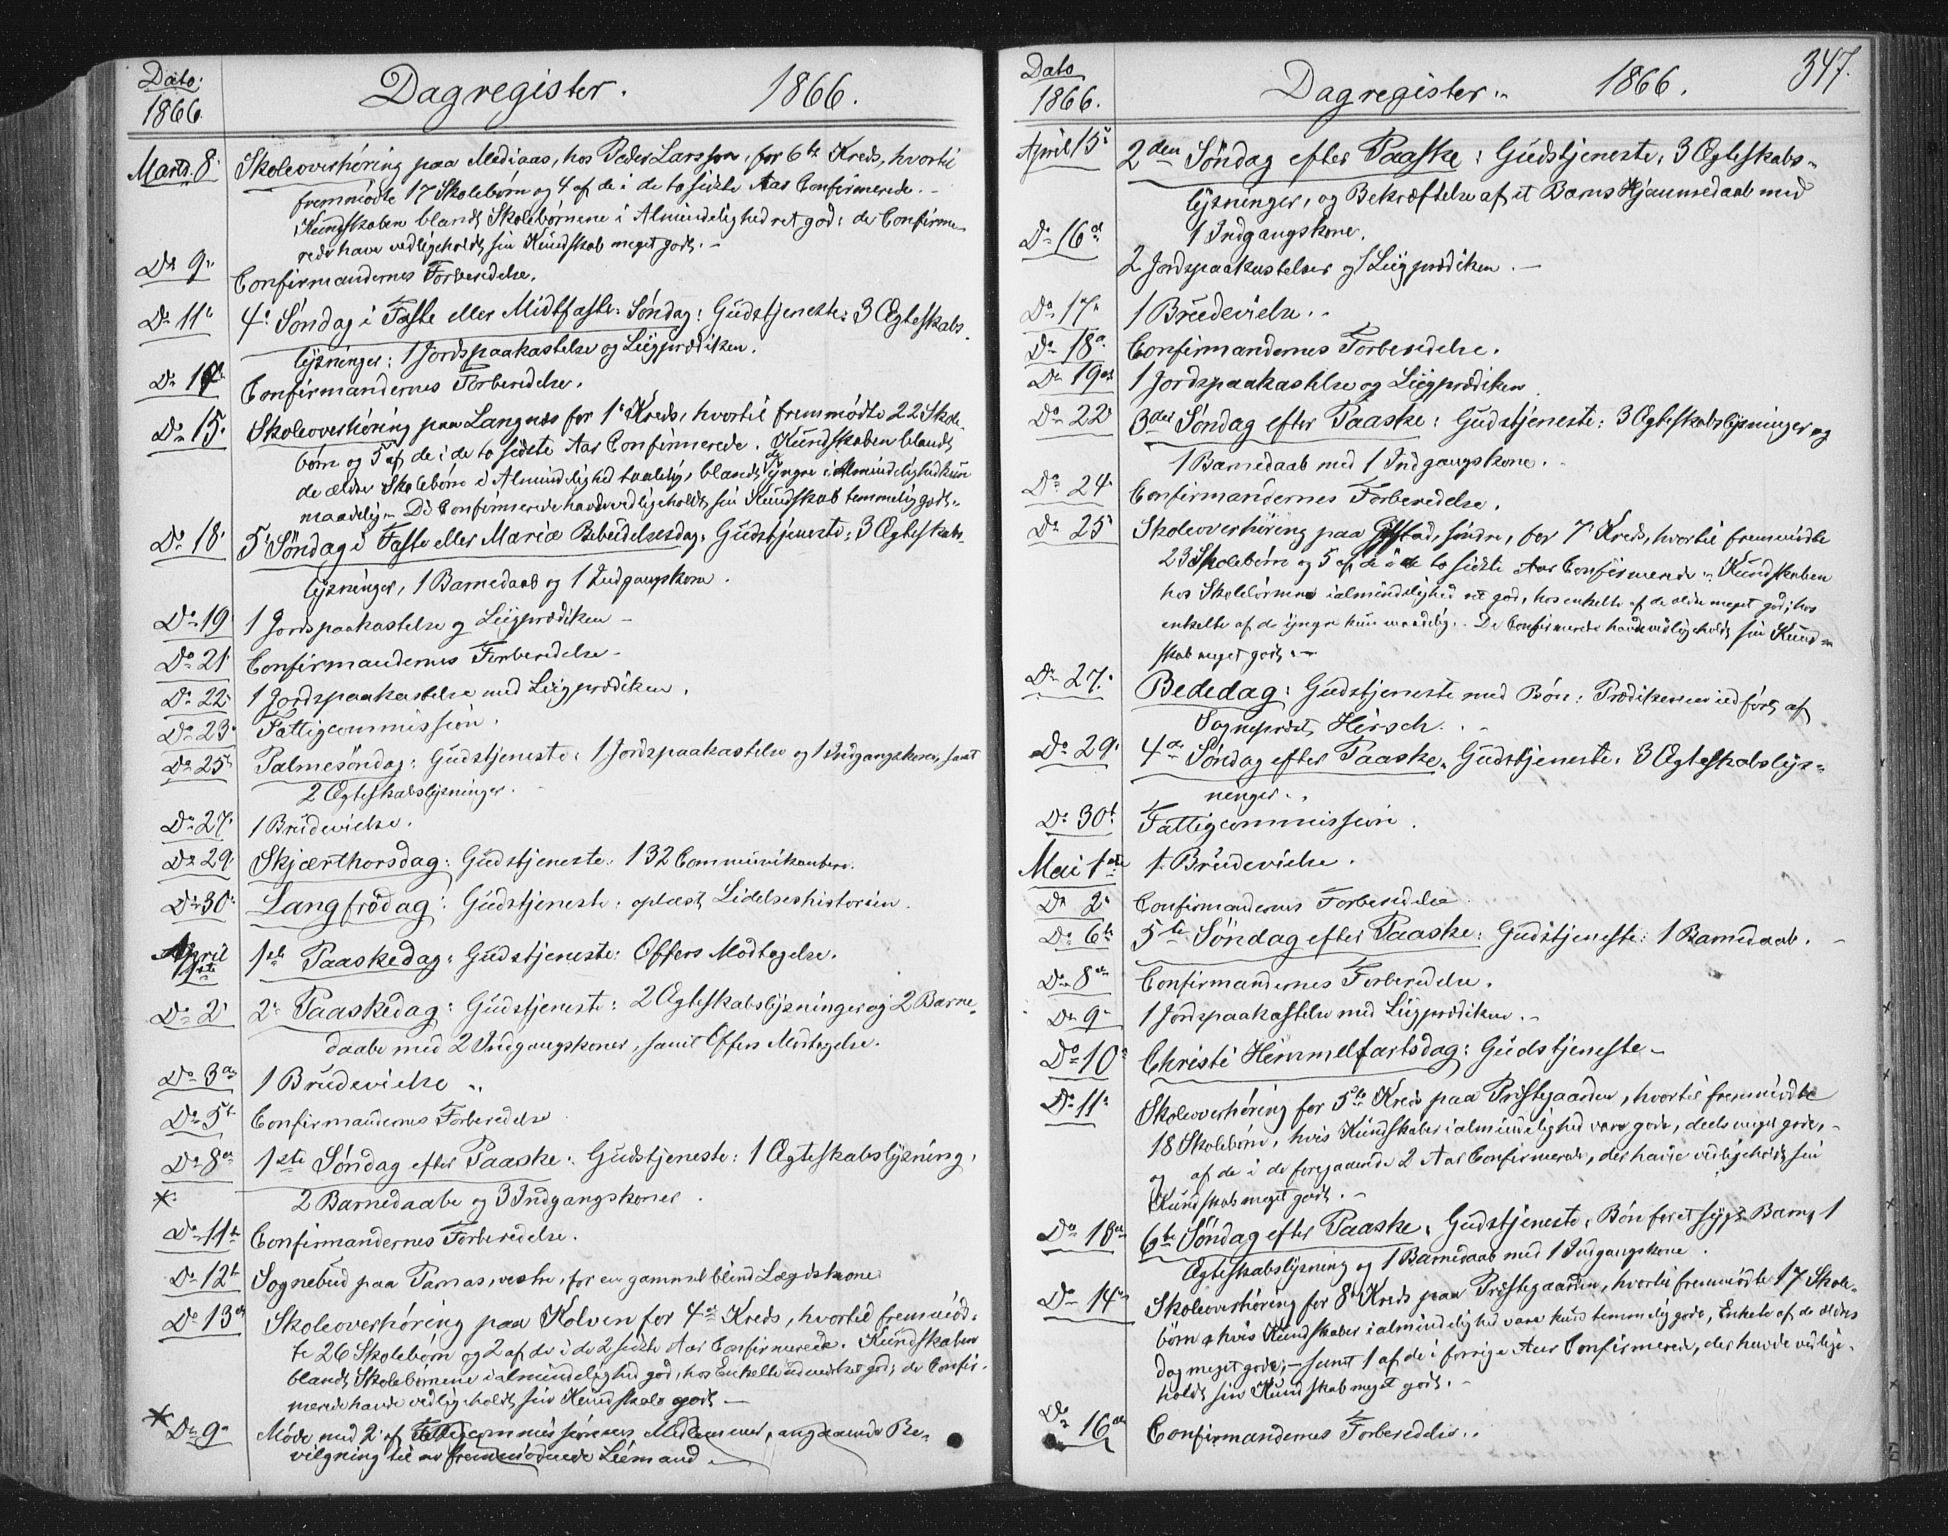 Dato
1866.
Dagregister. 1866.
Marts 8. Skoleoverhøring paa Mediaas, hos Peder Larsson, for 6te Kreds, hvortil
fremmødte 17 Skolebørn og 4 af de i de to sidste Aar Confirmerede. -
Kundskaben blandt Skolebørnene i Almindelighed ret god; de Confirme-
rede have vedligeholdt sin Kundskab meget godt. -
Do 9. Confirmandernes Forberedelse.
Do 11. 4. Søndag i Faste eller Midtfaste-Søndag: Gudstjeneste: 3 Ægteskabs-
lysninger: 1 Jordspaakastelse og Liigprædiken.
Do 14. Confirmandernes Forberedelse.
Do 15. Skoleoverhøring paa Langnæs for 1. Kreds, hvortil fremmødte 22 Skole-
børn og 5 af de i de to sidste Aar Confirmerede. Kundskaben blandt
de ældre Skolebørn i Almindelighed taalelig, blandt de yngre i Almindelighed kun
maadelig - De Confirmerede havde vedligeholdt sin Kundskab temmelig godt.-
Do 18. 5. Søndag i Faste eller Mariæ Bebudelsesdag: Gudstjeneste: 3 Ægteskabs-
lysninger, 1 Barnedaab og 1 Indgangskone.
Do 19. 1 Jordspaakastelse og Liigprædiken -
Do 21. Confirmandernes Forberedelse -
Do 22. 1 Jordspaakastelse med Liigprædiken.
Do 23. Fattigcommission.
Do 25. Palmesøndag: Gudstjeneste: 1 Jordspaakastelse og 1 Indgangskone, samt
2 Ægteskabslysninger.
Do 27. 1 Brudevielse.
Do 29. Skjærthorsdag: Gudstjeneste: 132 Communikantere.
Do 30. Langfredag: Gudstjeneste: oplæst Lidelseshistorien.
April 1ste 1ste Paaskedag: Gudstjeneste: Offers Modtagelse.
Do 2. 2. Paaskedag: Gudstjeneste: 2 Ægteskabslysninger og 2 Barne-
daabe med 2 Indgangskoner, samt Offers Modtagelse.
Do 3. 1 Brudevielse
Do 5. Confirmandernes Forberedelse
Do 8. 1ste Søndag efter Paaske: Gudstjeneste: 1 Ægteskabslysning,
* 2 Barnedaabe og 3 Indgangskoner.
Do 11. Confirmandernes Forberedelse.
Do 12. Sognebud paa Tamnæs, vestre, for en gammel blind Lægdskone
Do 13. Skoleoverhøring paa Kolven for 4de Kreds, hvortil fremmød-
te 26 Skolebørn og 2 af de i de 2 sidste Aar Confirmerede. Kundskaben
blandt Skolebørnene i almindelighed god, hos Enkelte udmærket god; de Confir-
merede havde vedligeholdt sin Kundskab godt -
* Do 9. Møde med 2 af Fattigcommissionens Medlemmer, angaaende Be-
vilgning til en fremmødende Liemand.
Dato
1866.
Dagregister. 1866. 347.
April 15. 2den Søndag efter Paaske: Gudstjeneste: 3 Ægteskabs-
lysninger, og Bekræftelse af et Barns Hjemmedaab med
1 Indgangskone.
Do 16. 2 Jordspaakastelser og 1 Liigprædiken. -
Do 17. 1 Brudevielse.
Do 18. Confirmandernes Forberedelse.
Do 19. 1 Jordspaakastelse og Liigprædiken
Do 22. 3die Søndag efter Paaske: Gudstjeneste: 3 Ægteskabslysninger og
1 Barnedaab med 1 Indgangskone.
Do 24. Confirmandernes Forberedelse.
Do 25. Skoleoverhøring paa søndre, for 7. Kreds, hvortil fremmødte
23 Skolebørn og 5 af de i de to sidste Aar Confirmerede - Kundskaben
hos Skolebørnene i almindelighed ret god, hos enkelte af de ældre meget god; hos
enkelte af de yngre kun maadelig. - De Confirmerede havde vedligeholdt sin Kund-
skab meget godt. -
Do 27. Bededag: Gudstjeneste med Bøn: Prædikenen udført af
Sogneprest Hirsch.
Do 29. 4de Søndag efter Paaske. Gudstjeneste: 3 Ægteskabslys-
ninger.
Do 30. Fattigcommission.
Mai 1ste 1. Brudevielse.
Do 2. Confirmandernes Forberedelse
Do 6. 5te Søndag efter Paaske: Gudstjeneste: 1 Barnedaab. -
Do 8. Confirmandernes Forberedelse.
Do 9. 1 Jordspaakastelse med Liigprædiken. -
Do 10. Christi Himmelfartsdag: Gudstjeneste -
Do 11. Skoleoverhøring for 5te Kreds paa Præstegaarden, hvortil fremmødte
18 Skolebørn, hvis Kundskaber i almindelighed vare gode, deels meget gode, -
og af de i de foregaaende 2 Aar Confirmerede, der havde vedligeholdt sin
Kundskab meget godt. -
Do 13. 6te Søndag efter Paaske: Gudstjeneste, Bøn for et sygt Barn, 1
Ægteskabslysning og 1 Barnedaab med 1 Indgangskone.
Do 14. Skoleoverhøring for 8. Kreds paa Præstegaarden, hvortil fremmødte 17 Skole-
børn, hvis Kundskaber i almindelighed vare kun temmelig gode, Enkelte af de ældres
dog meget gode; - samt 1 af de i forrige Aar Confirmerede, der havde vedlige-
holdt sin Kundskab meget godt. -
Do 16. Confirmandernes Forberedelse.